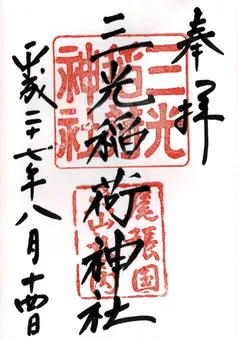 奉拝
三光稲荷神社
平成二十七年八月十四日
三光稲荷神社
尾張国